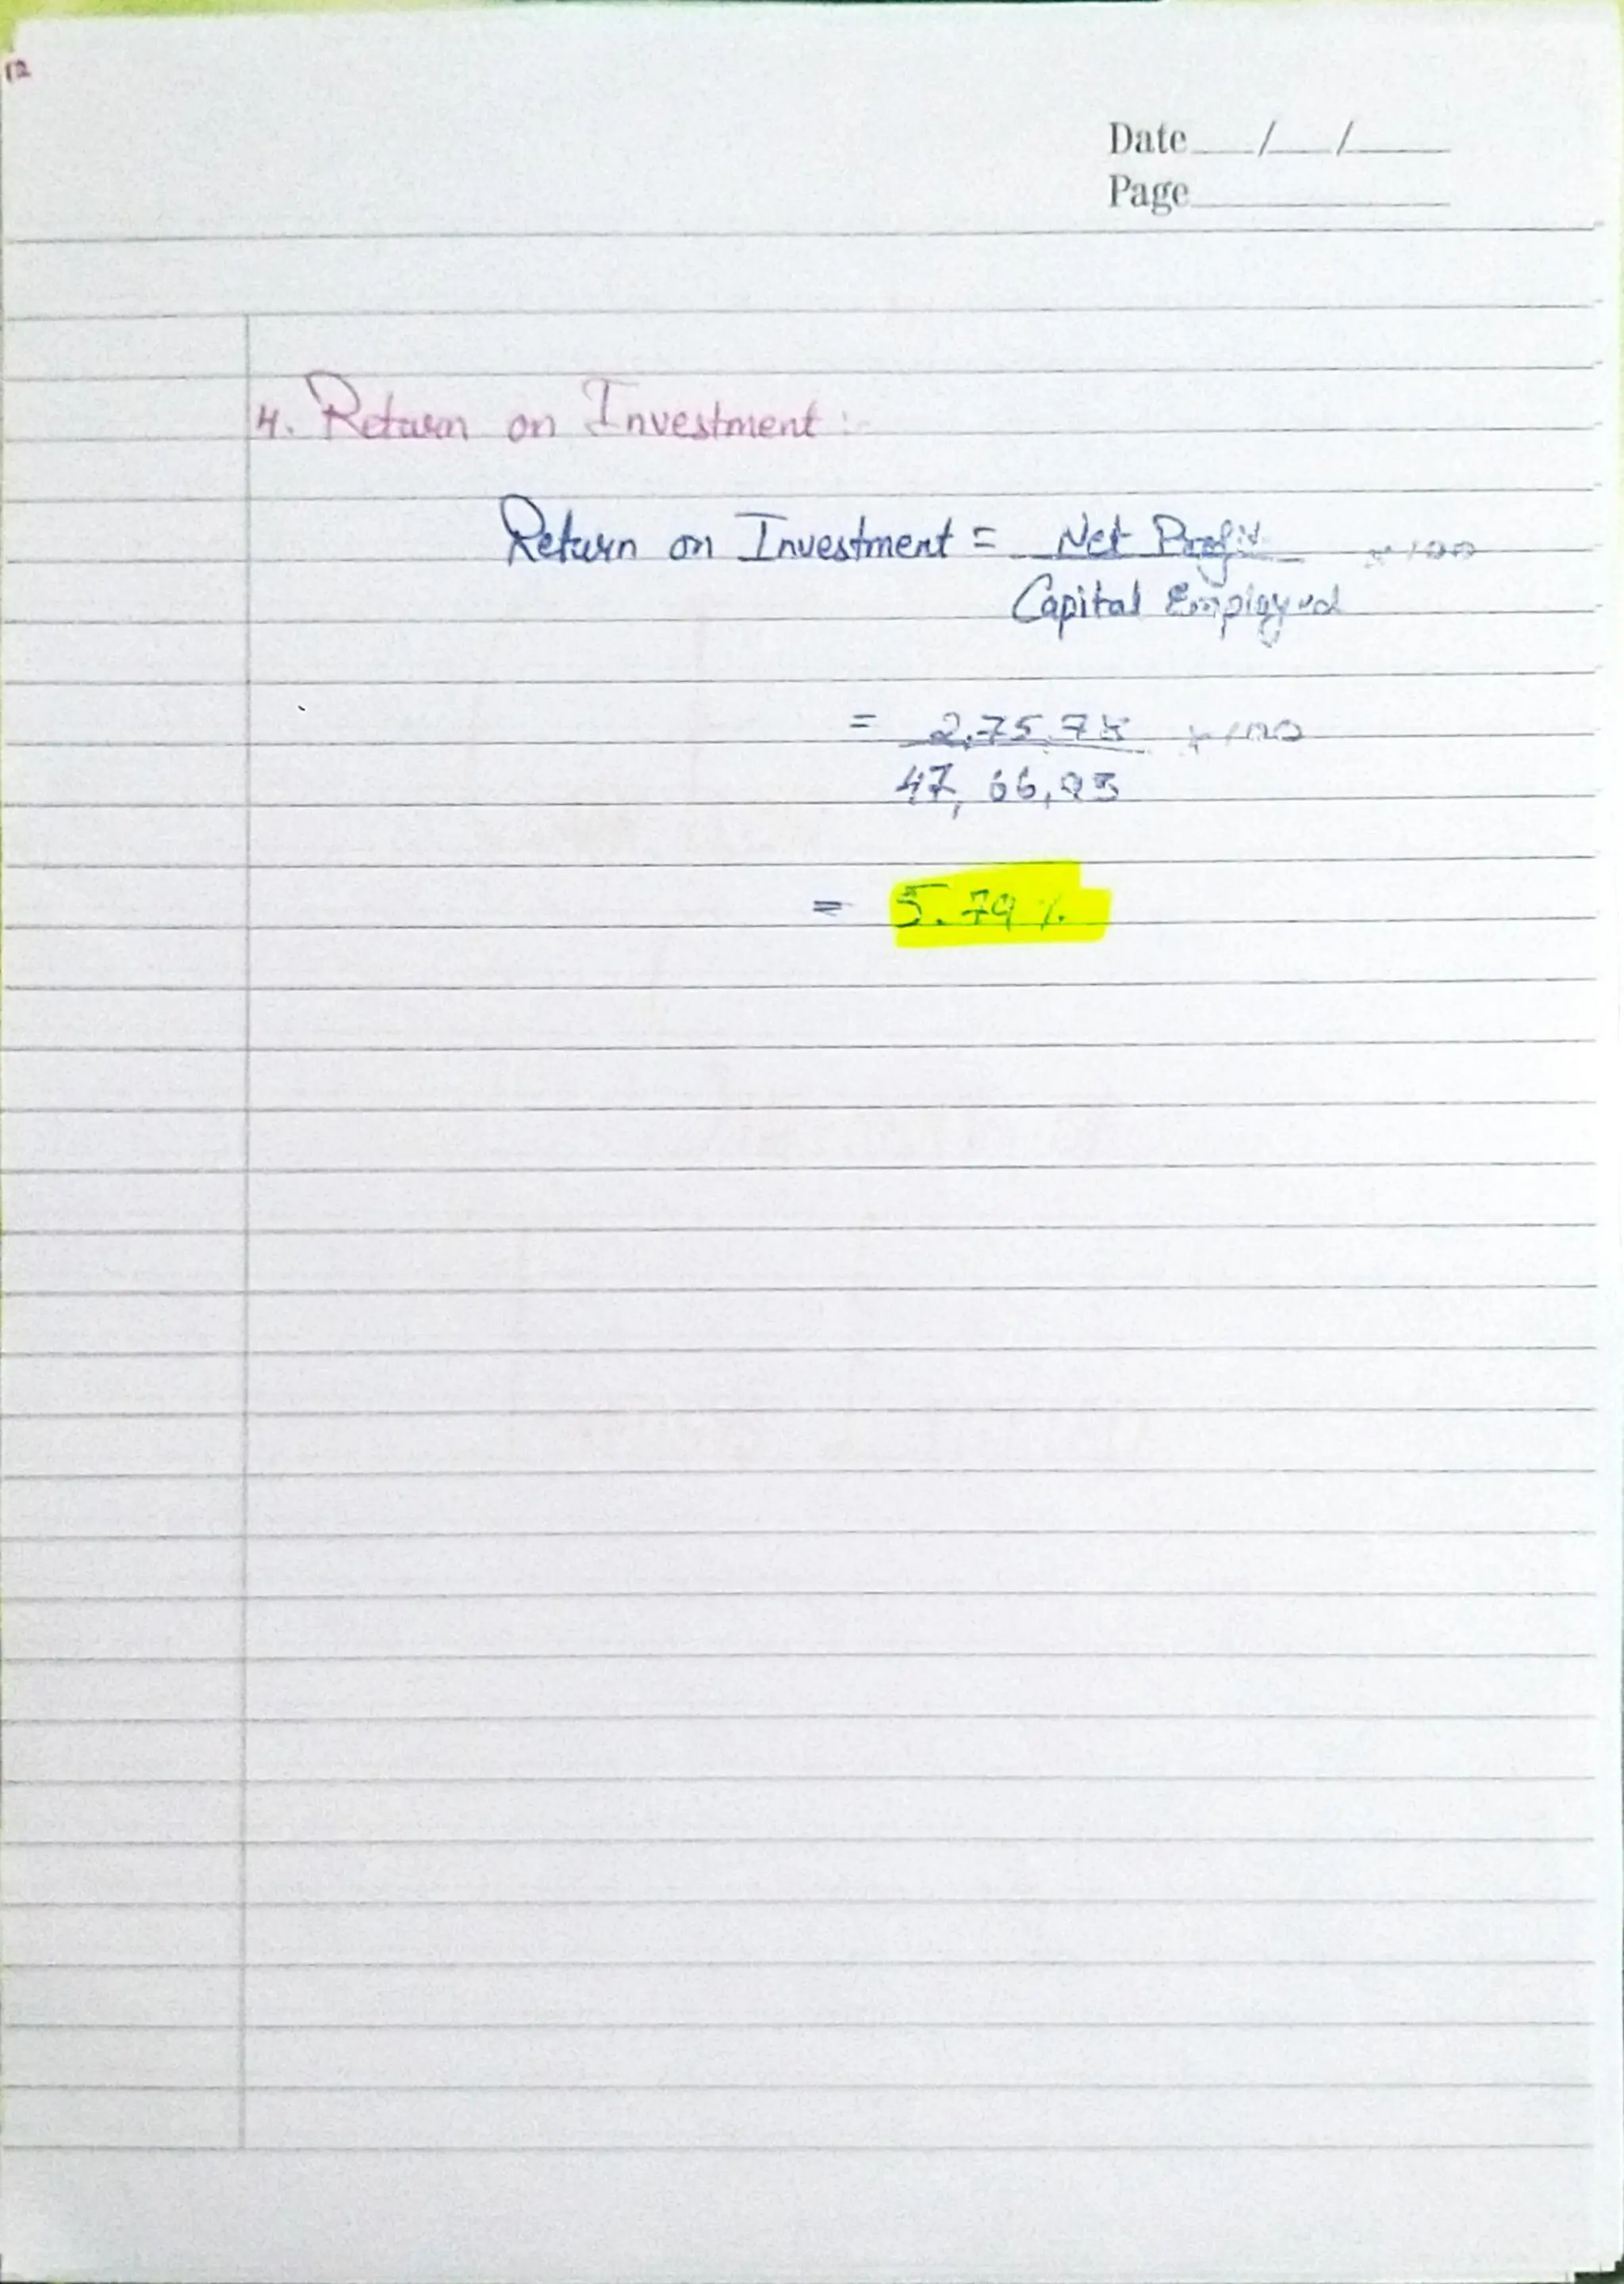 12
Date ___/___/____
Page
4. Return on Investment :-
Return on Investment = Net Profit × 100
Capital Employed
= 2,75,78 × 100
47,66,93
= 5.79 %